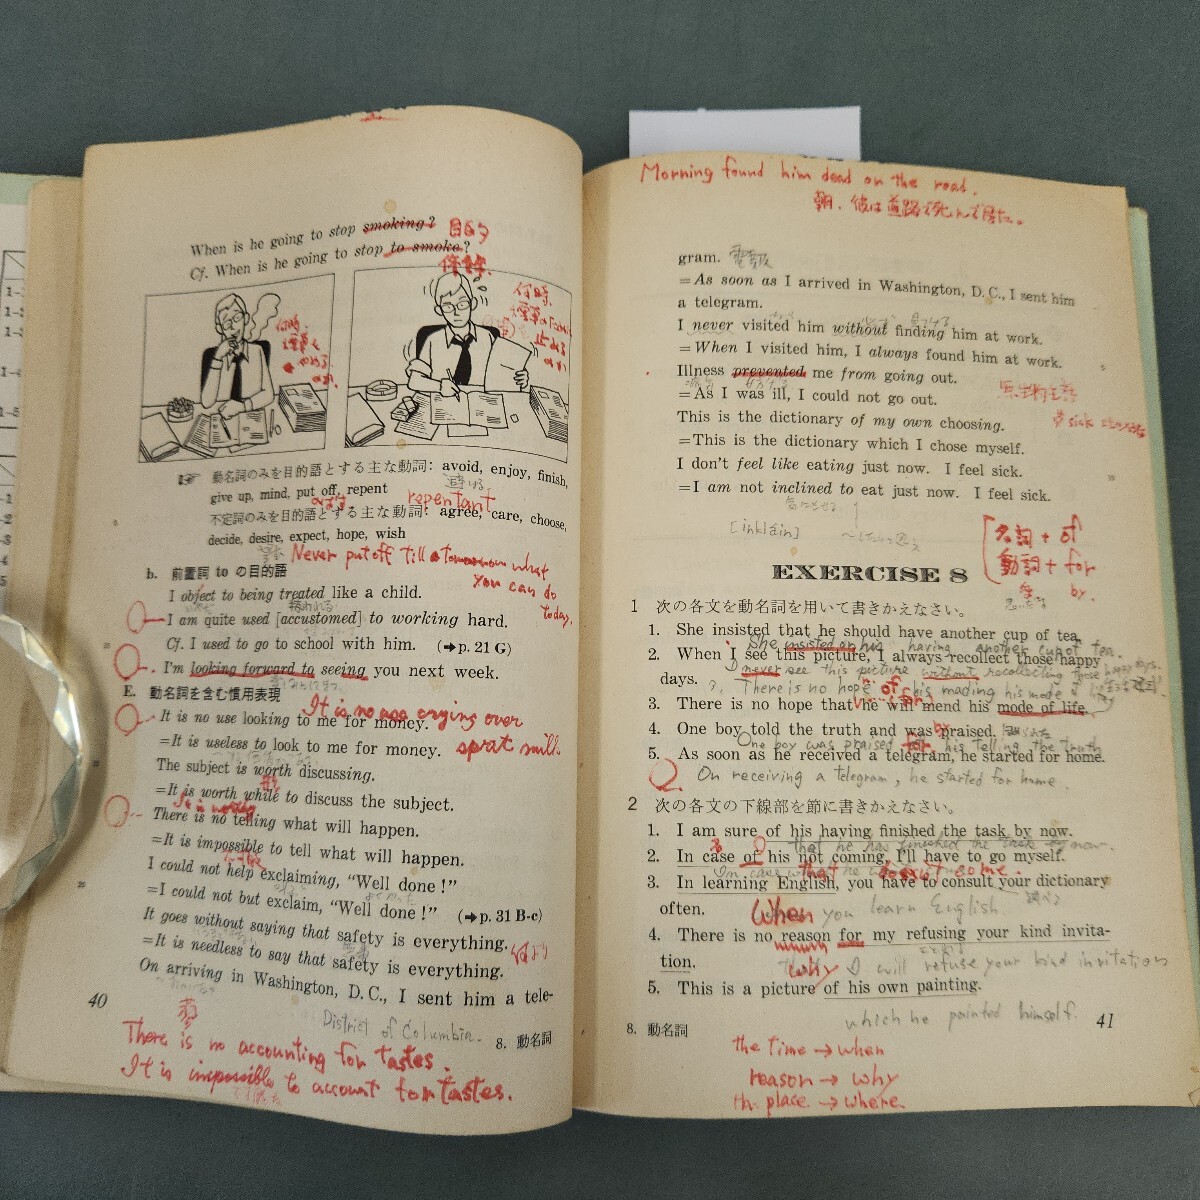 When is he going to stop smoking?
Cf. When is he going to stop to smoke?
目的
☞ 動名詞のみを目的語とする主な動詞: avoid, enjoy, finish,
give up, mind, put off, repent
repentant
不定詞のみを目的語とする主な動詞: agree, care, choose,
decide, desire, expect, hope, wish
Never put off till tomorrow what
you can do
today.
b. 前置詞 to の目的語
I object to being treated like a child.
I am quite used [accustomed] to working hard.
Cf. I used to go to school with him. (➡p. 21 G)
I'm looking forward to seeing you next week.
E. 動名詞を含む慣用表現
It is no use crying over
It is no use looking to me for money.
=It is useless to look to me for money.
The subject is worth discussing.
=It is worth while to discuss the subject.
There is no telling what will happen.
=It is impossible to tell what will happen.
I could not help exclaiming, “Well done!”
=I could not but exclaim, “Well done!” (➡p. 31 B-c)
It goes without saying that safety is everything.
=It is needless to say that safety is everything.
On arriving in Washington, D. C., I sent him a tele-
District of Columbia.
40
8. 動名詞
There is no accounting for tastes.
It is impossible to account for tastes.
Morning found him dead on the road.
朝、彼は道路で死んで居た。
gram. 電報
=As soon as I arrived in Washington, D. C., I sent him
a telegram.
I never visited him without finding him at work.
=When I visited him, I always found him at work.
Illness prevented me from going out.
=As I was ill, I could not go out.
This is the dictionary of my own choosing.
=This is the dictionary which I chose myself.
I don't feel like eating just now. I feel sick.
=I am not inclined to eat just now. I feel sick.
[inkláin]
名詞 + of
動詞 + for
by.
EXERCISE 8
1 次の各文を動名詞を用いて書きかえなさい。
1. She insisted that he should have another cup of tea.
She insisted on his having another cup of tea.
2. When I see this picture, I always recollect those happy
days.
I never see this picture without recollecting those happy days.
There is no hope of his mading his mode of
3. There is no hope that he will mend his mode of life.
4. One boy told the truth and was praised.
One boy was praised for his telling the truth
5. As soon as he received a telegram, he started for home.
On receiving a telegram, he started for home.
2 次の各文の下線部を節に書きかえなさい。
1. I am sure of his having finished the task by now.
that he has finished the task by now.
2. In case of his not coming, I'll have to go myself.
3. In learning English, you have to consult your dictionary
often.
When you learn English
4. There is no reason for my refusing your kind invita-
tion.
why I will refuse your kind invitation
5. This is a picture of his own painting.
which he painted himself.
8. 動名詞
41
the time → when
reason → why
the place → where.